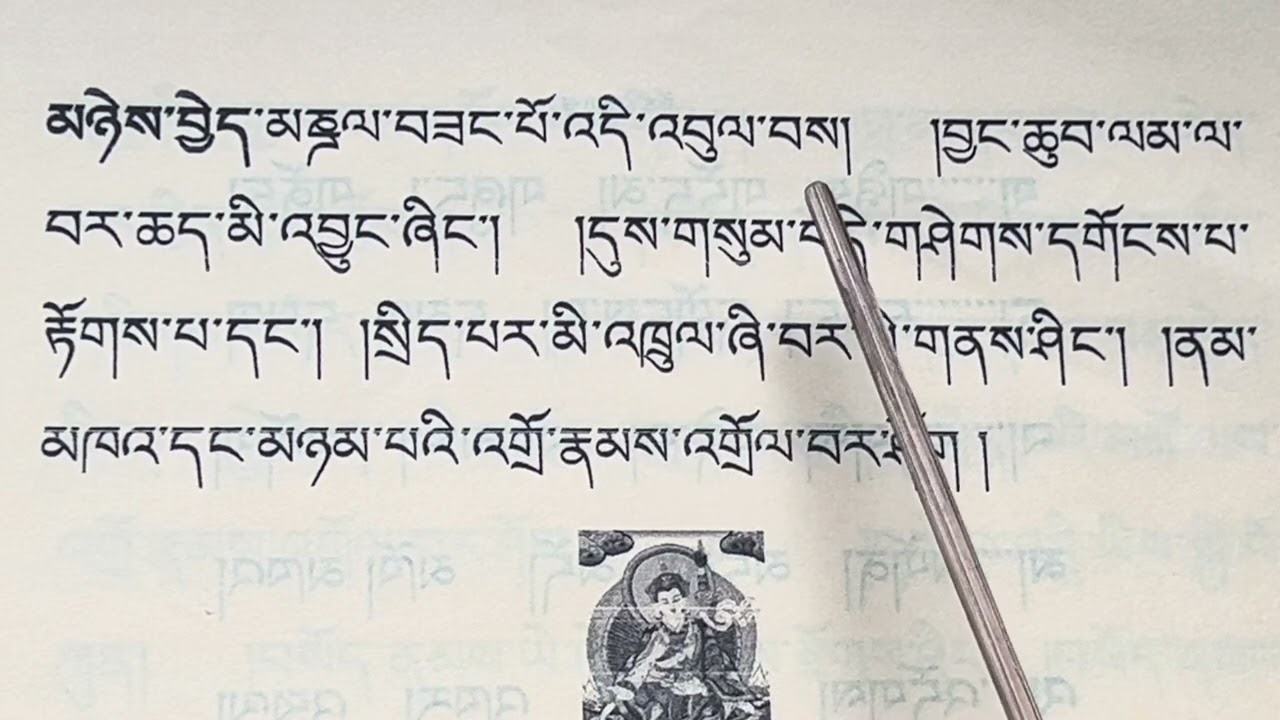 མཉེས་བྱེད་མཎྜལ་བཟང་པོ་འདི་འབུལ་བས། །བྱང་ཆུབ་ལམ་ལ་
བར་ཆད་མི་འབྱུང་ཞིང་། །དུས་གསུམ་བདེ་གཤེགས་དགོངས་པ་
རྟོགས་པ་དང་། །སྲིད་པར་མི་འཁྲུལ་ཞི་བར་མི་གནས་ཤིང་། །ནམ་
མཁའ་དང་མཉམ་པའི་འགྲོ་རྣམས་འགྲོལ་བར་ཤོག །